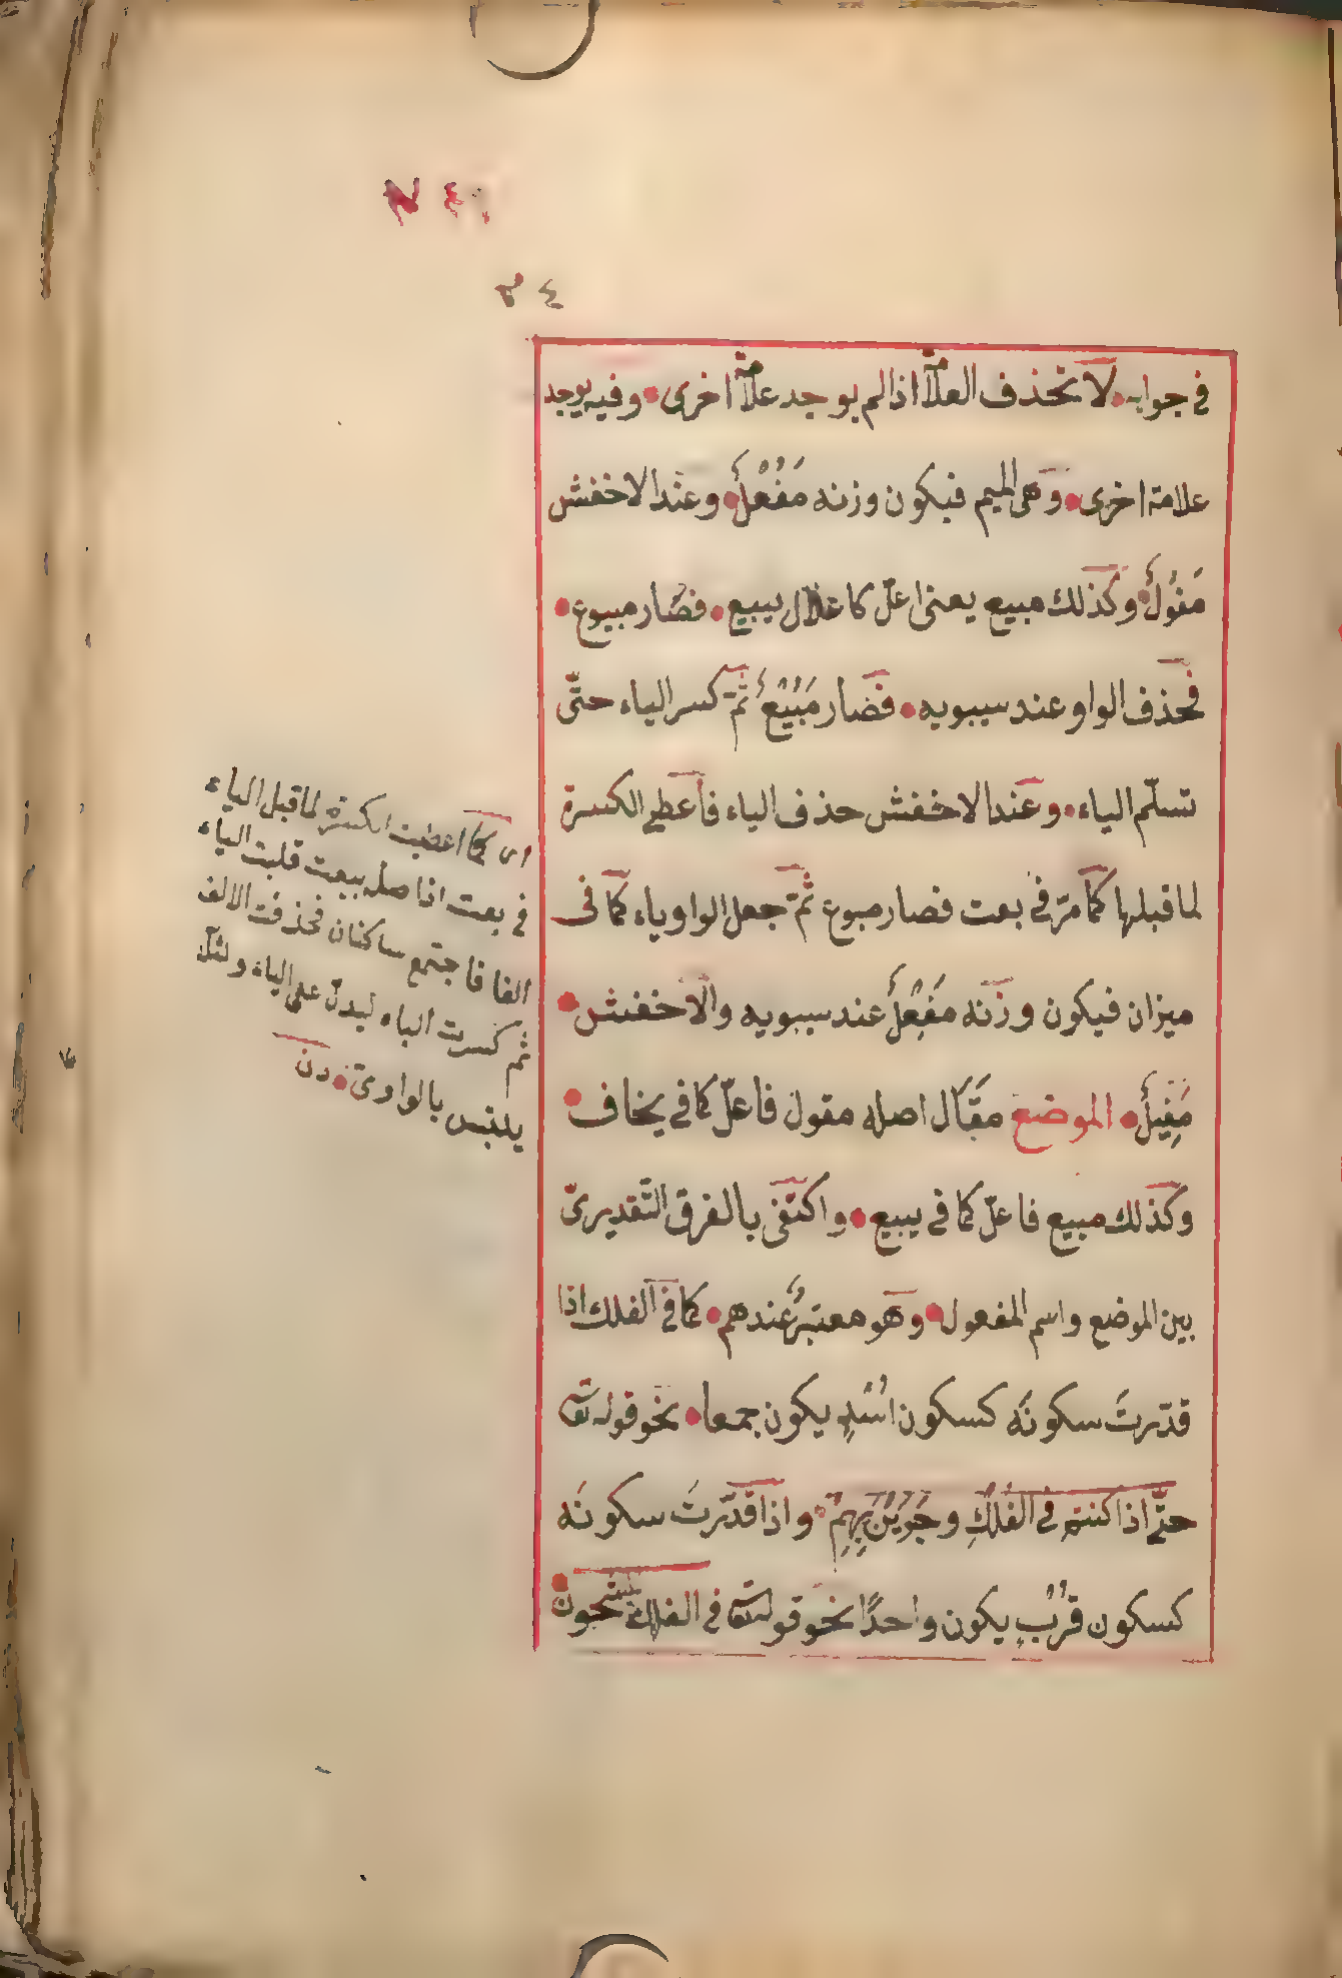 ٣٤
في جوابه لا تحذف العلامة اذا لم يوجد علامة اخرى وفيه يوجد
علامة اخرى وهى الميم فيكون وزنه مَفُعْلٌ وعند الاخفش
مَفُوْلٌ وكذلك مبيع يعنى اعلّ كاعلال يبيع فصار مبيوع
فحذف الواو عند سيبويه فصار مَبُيْعٌ ثمّ كسر الباء حتّى
تسلّم الياء وعند الاخفش حذف الياء فاعطى الكسرة
لما قبلها كما مرّ في بعت فصار مبوع ثمّ جعل الواو ياء كما فى
ميزان فيكون وزنه مَفِعْلٌ عند سيبويه والاخفش
مَفِيْلٌ الموضع مقال اصله مقول فاعلّ كما في يخاف
وكذلك مبيع فاعلّ كما في يبيع واكتفى بالفرق التّقديرىّ
بين الموضع واسم المفعول وهو معتبرٌ عندهم كما في الفلك اذا
قدّرتَ سكونَه كسكون اُسْدٍ يكون جمعا نحو قوله تعالى
حتّى اذا كنتم في الفُلْكِ وجَرَيْنَ بِهِمْ واذا قدّرتَ سكونَه
كسكون قُرْبٍ يكون واحدًا نحو قوله تعالى في الفلك المشحون
اى كما اعطيت الكسرة لما قبل الياء
في بعت اذ اصله بيعت قلبت الياء
الفا فاجتمع ساكنان فحذفت الالف
ثم كسرت الباء ليدلّ على الياء ولئلا
يلتبس بالواوىّ